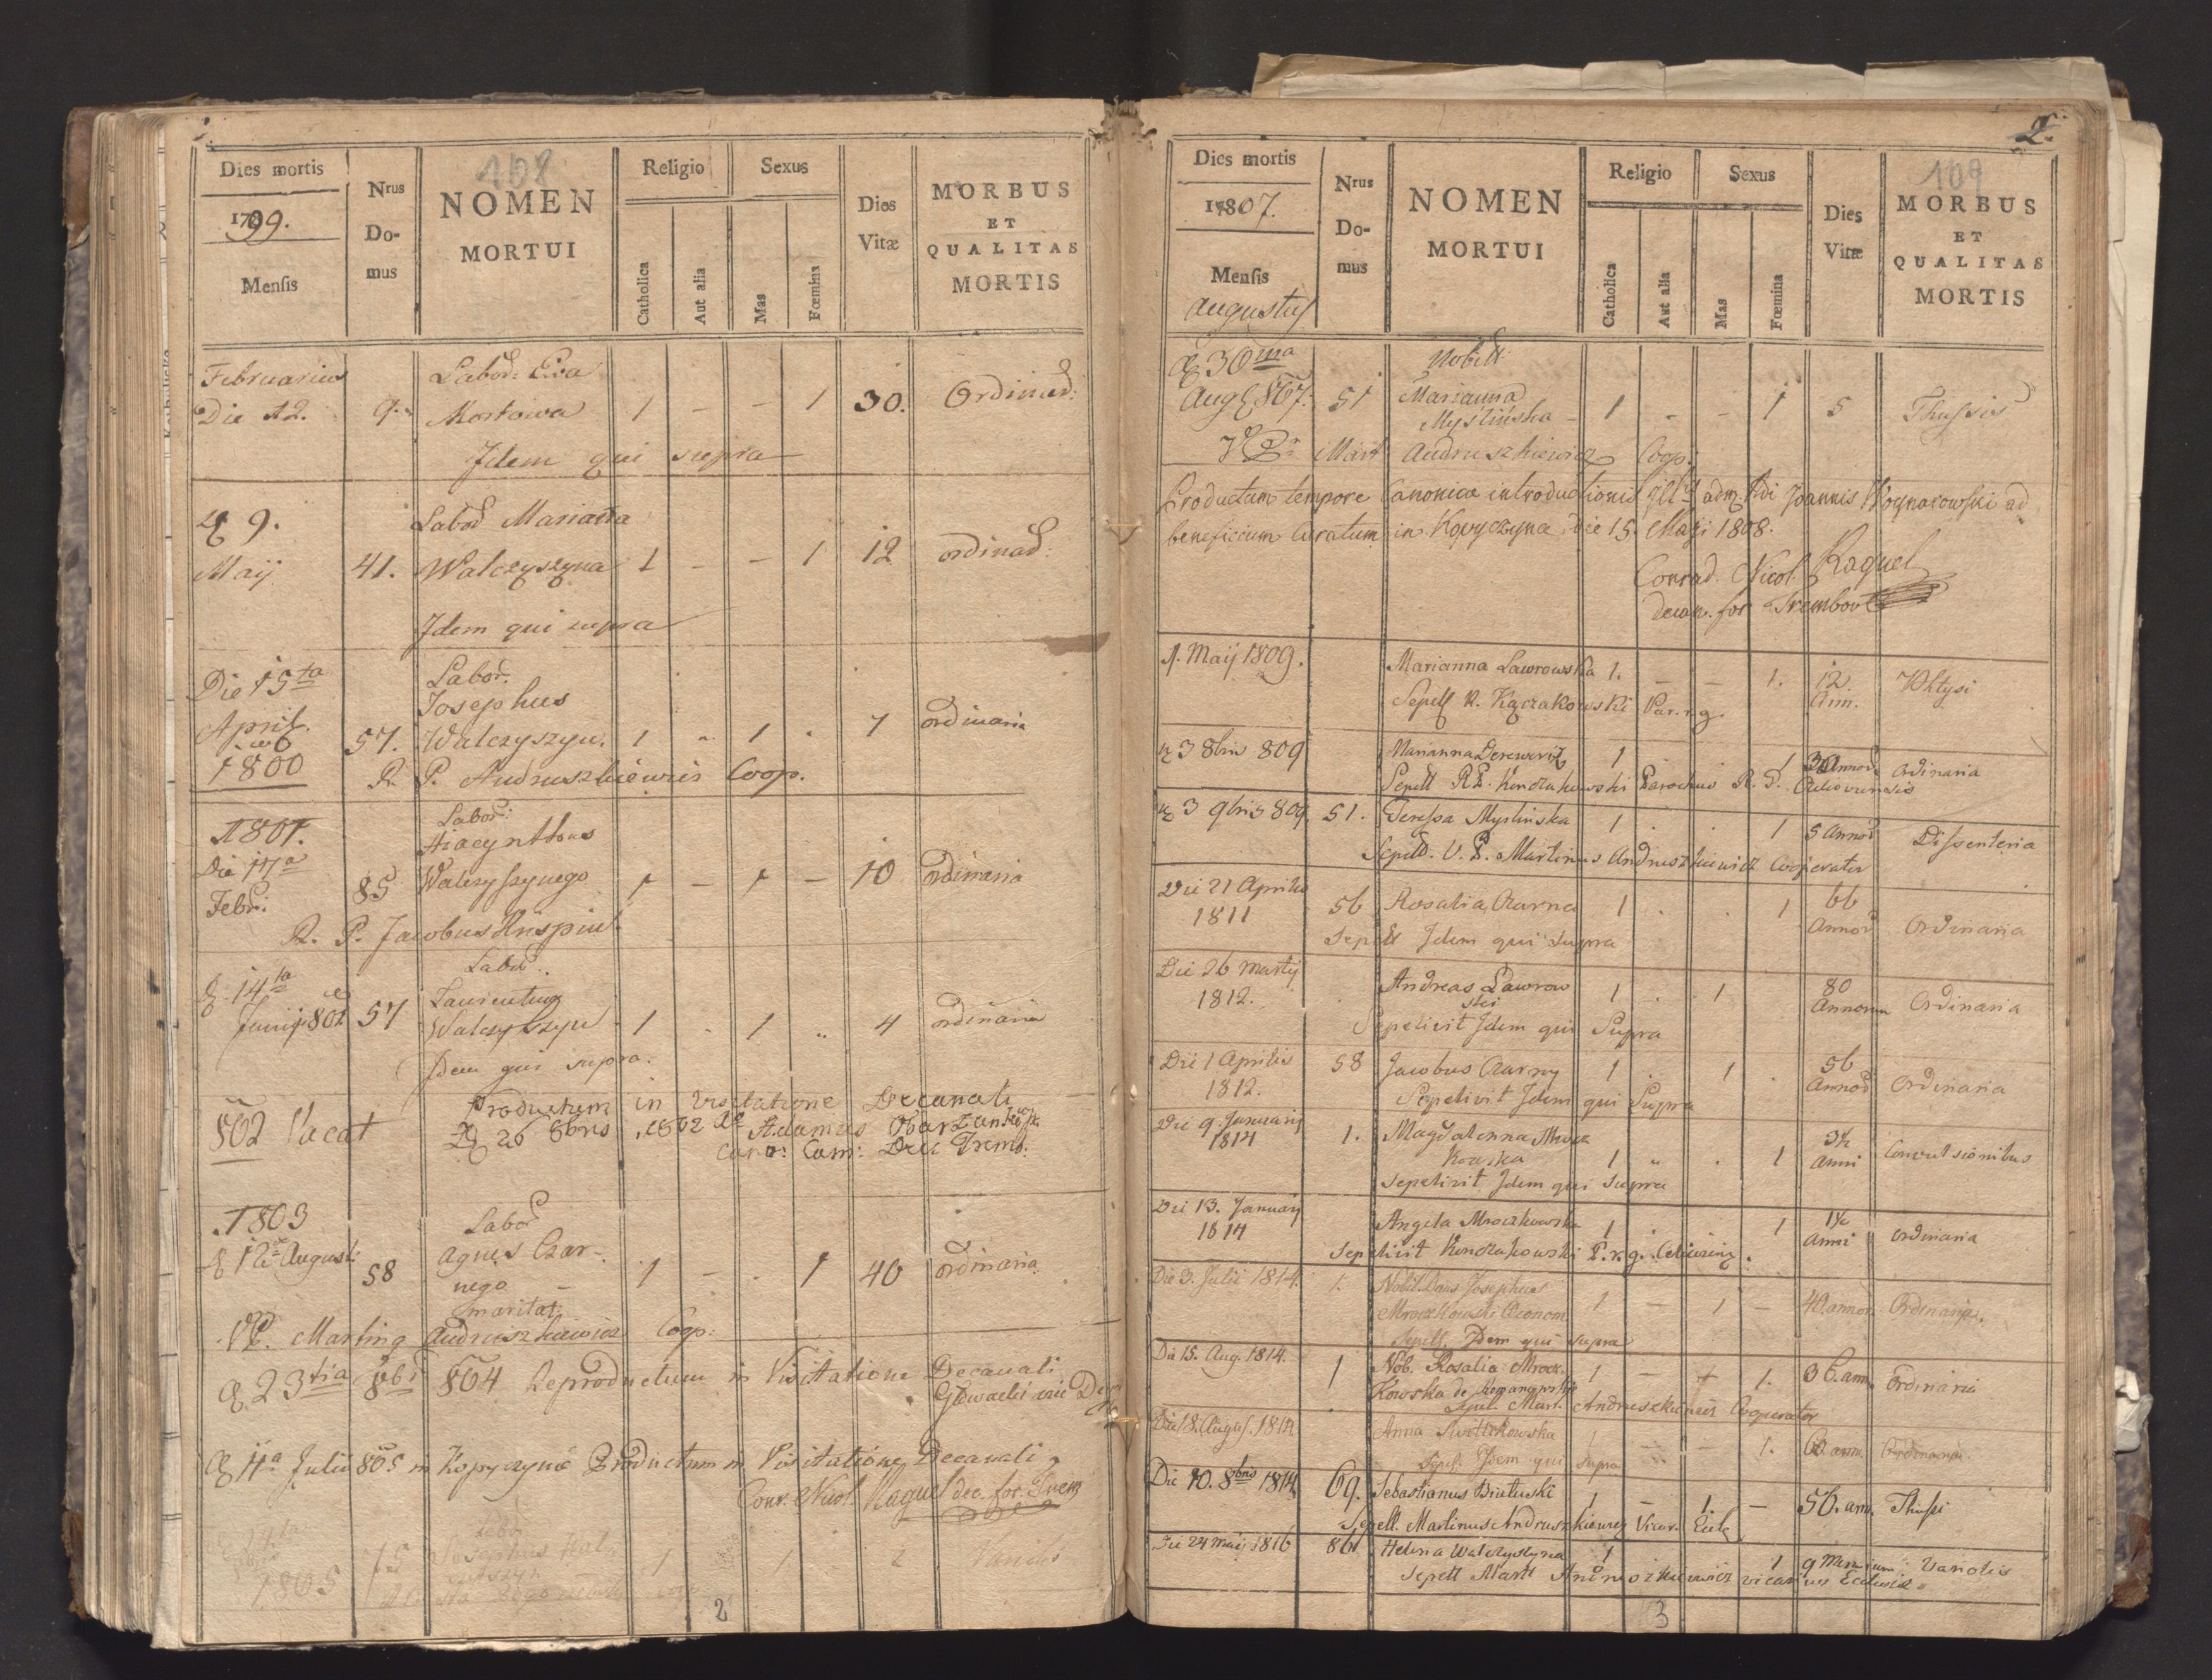 108
Dies mortis
1799.
Mensis
Nrus
Do-
mus
NOMEN
MORTUI
Religio
Catholica
Aut alia
Sexus
Mas
Fœmina
Dies
Vitæ
MORBUS
ET
QUALITAS
MORTIS
Februarius Labor: Eva
Die 12. 9. Mostowa 1 - - 1 30. Ordinar:
Idem qui supra
9. Labor Marianna
Maij 41. Walczyszyna 1 - - 1 12 ordinar:
Idem qui supra
Die 15ta Labor.
April. Josephus
57. Walczyszyn. 1 1 7 ordinaria
1800 R. P. Andruszkiewicz Coop.
1801. Labor:
Die 17a Hiacynthus
Febr: 85 Walczyszynego 1 - 1 - 10 ordinaria
R. P. Jacobus
14ta Labor:
Laurentius
Junij 801 57 Walczyszyn 1 - 1 4 ordinaria
Idem qui supra.
802 Vacat Productum in Visitatione Decanali
26 8bris 1802 Adamus
Can: Decc Tremb.
1803 Labor
12 Augusti Agnes Czar-
58 nego 1 - - 1 40 ordinaria
marita
VP. Martinq Andruszkiewicz Coop:
23tia 804 Reproductum in Visitatione Decanali
11a Julii 805 in Kopyczyńce Productum in Visitatione Decanali
Conr. Nicol. Raquel dec. for. Trem
1805 75 Josephus 1 1 2
2
2.
109
Dies mortis
1807.
Mensis
Augustus
Nrus
Do-
mus
NOMEN
MORTUI
Religio
Catholica
Aut alia
Sexus
Mas
Fœmina
Dies
Vitæ
MORBUS
ET
QUALITAS
MORTIS
30ma Nobilis
Aug 807. 51 Marianna
Myślińska 1 - - 1 5 Thussis
Mart Andruszkiewicz Coop.
Productum tempore Canonicæ introductionis adm. Rdi Joannis Wognarowski ad
beneficium Curatum in Kopyczynce die 15. Maji 1808.
Conrad. Nicol. Raquel
decan. for Trembov
1. Maij 1809. Marianna Lawrowska 1. - - 1. 12. Phtysi
Sepel R. Kęczakowski Par. r. g. ann.
3 8bris 809 Marianna 1 . . 1 30 Annor Ordinaria
Sepelt R.P. Konczakowski Parochus R. G.
3 9bris 809. 51. Teressa Myslinska 1 . . 1 5 Annor Dissenteria
Sepelt. V. P. Martinus Andruszkiewicz Cooperator
Die 21 Aprilis 66
1811 56 Rosalia Czarna 1 . . 1 Annor Ordinaria
Sepelt Idem qui Supra
Die 26 Martij Andreas Lawrow 80
1812. ski 1 . 1 Annorum Ordinaria
Sepelivit Idem qui Supra
Die 1 Aprilis 58 Jacobus Czarny 1 . 1 . 56
1812. Annor Ordinaria
Sepelivit Idem qui Supra
Die 9. Januarij 1. Magdalenna Mrocz 3½
1814 kowska 1 . 1 Anni Convulsionibus
Sepelivit Idem qui Supra
Die 13. Januarij 1½
1814 Angela Mroczkowska 1 . 1 Anni ordinaria
Sepelivit Konczakowski P. r. g.
Die 3. Julii 1814. 1. Nobil. Dnus Josephus
Mroczkowski Œconom 1 - 1 - 40. annor. Ordinaria.
Sepelt. Idem qui supra
Die 15. Aug. 1814. 1 Nob. Rosalia Mrocz- 1 - - 1. 36. ann. Ordinaria
kowska de
Sepel. Mart. Andruszkiewicz Cooperator
Die 18. August. 1814 Anna 1 - - 1. 60 ann. Ordinaria
Sepel. Idem qui supra
Die 10. 8bris 1814 69. Sebastianus 1 - 1. - 56. ann. Thussi
Sepelt. Martinus Andruszkiewicz Vicar. Eccle
Die 24 Maij 1816 86 Helena Walczyszyna 1 1 9 Mensium Variolis
Sepelt Mart Andruszkiewicz vicarius Ecclesiæ
3